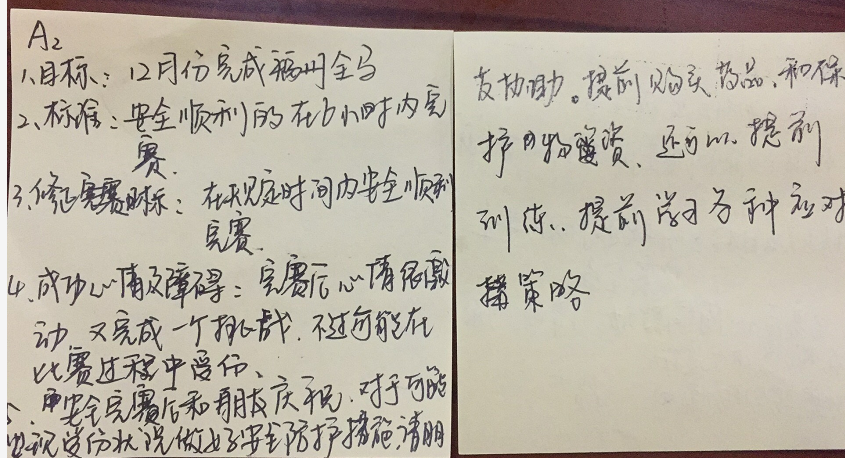 A2
1、目标：12月份完成福州全马
2、标准：安全顺利的在6小时内完
赛.
3、修正完赛目标：在规定时间内安全顺利
完赛.
4、成功心情及障碍：完赛后心情很激
动,又完成一个挑战.不过可能在
比赛过程中受伤、
安全完赛后和朋友庆祝.对于可能
出现受伤状况做好安全防护措施,请朋
友协助。提前购买药品、和保
护用物资、还可以提前
训练、提前学习各种应对
策略